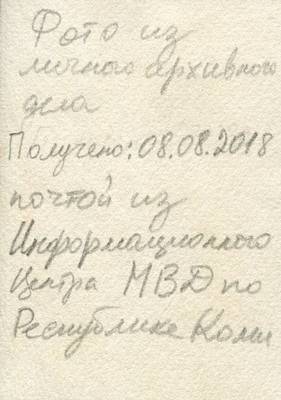 Фото из
личного архивного
дела
Получено: 08.08.2018
почтой из
Информационного
Центра МВД по
Республике Коми